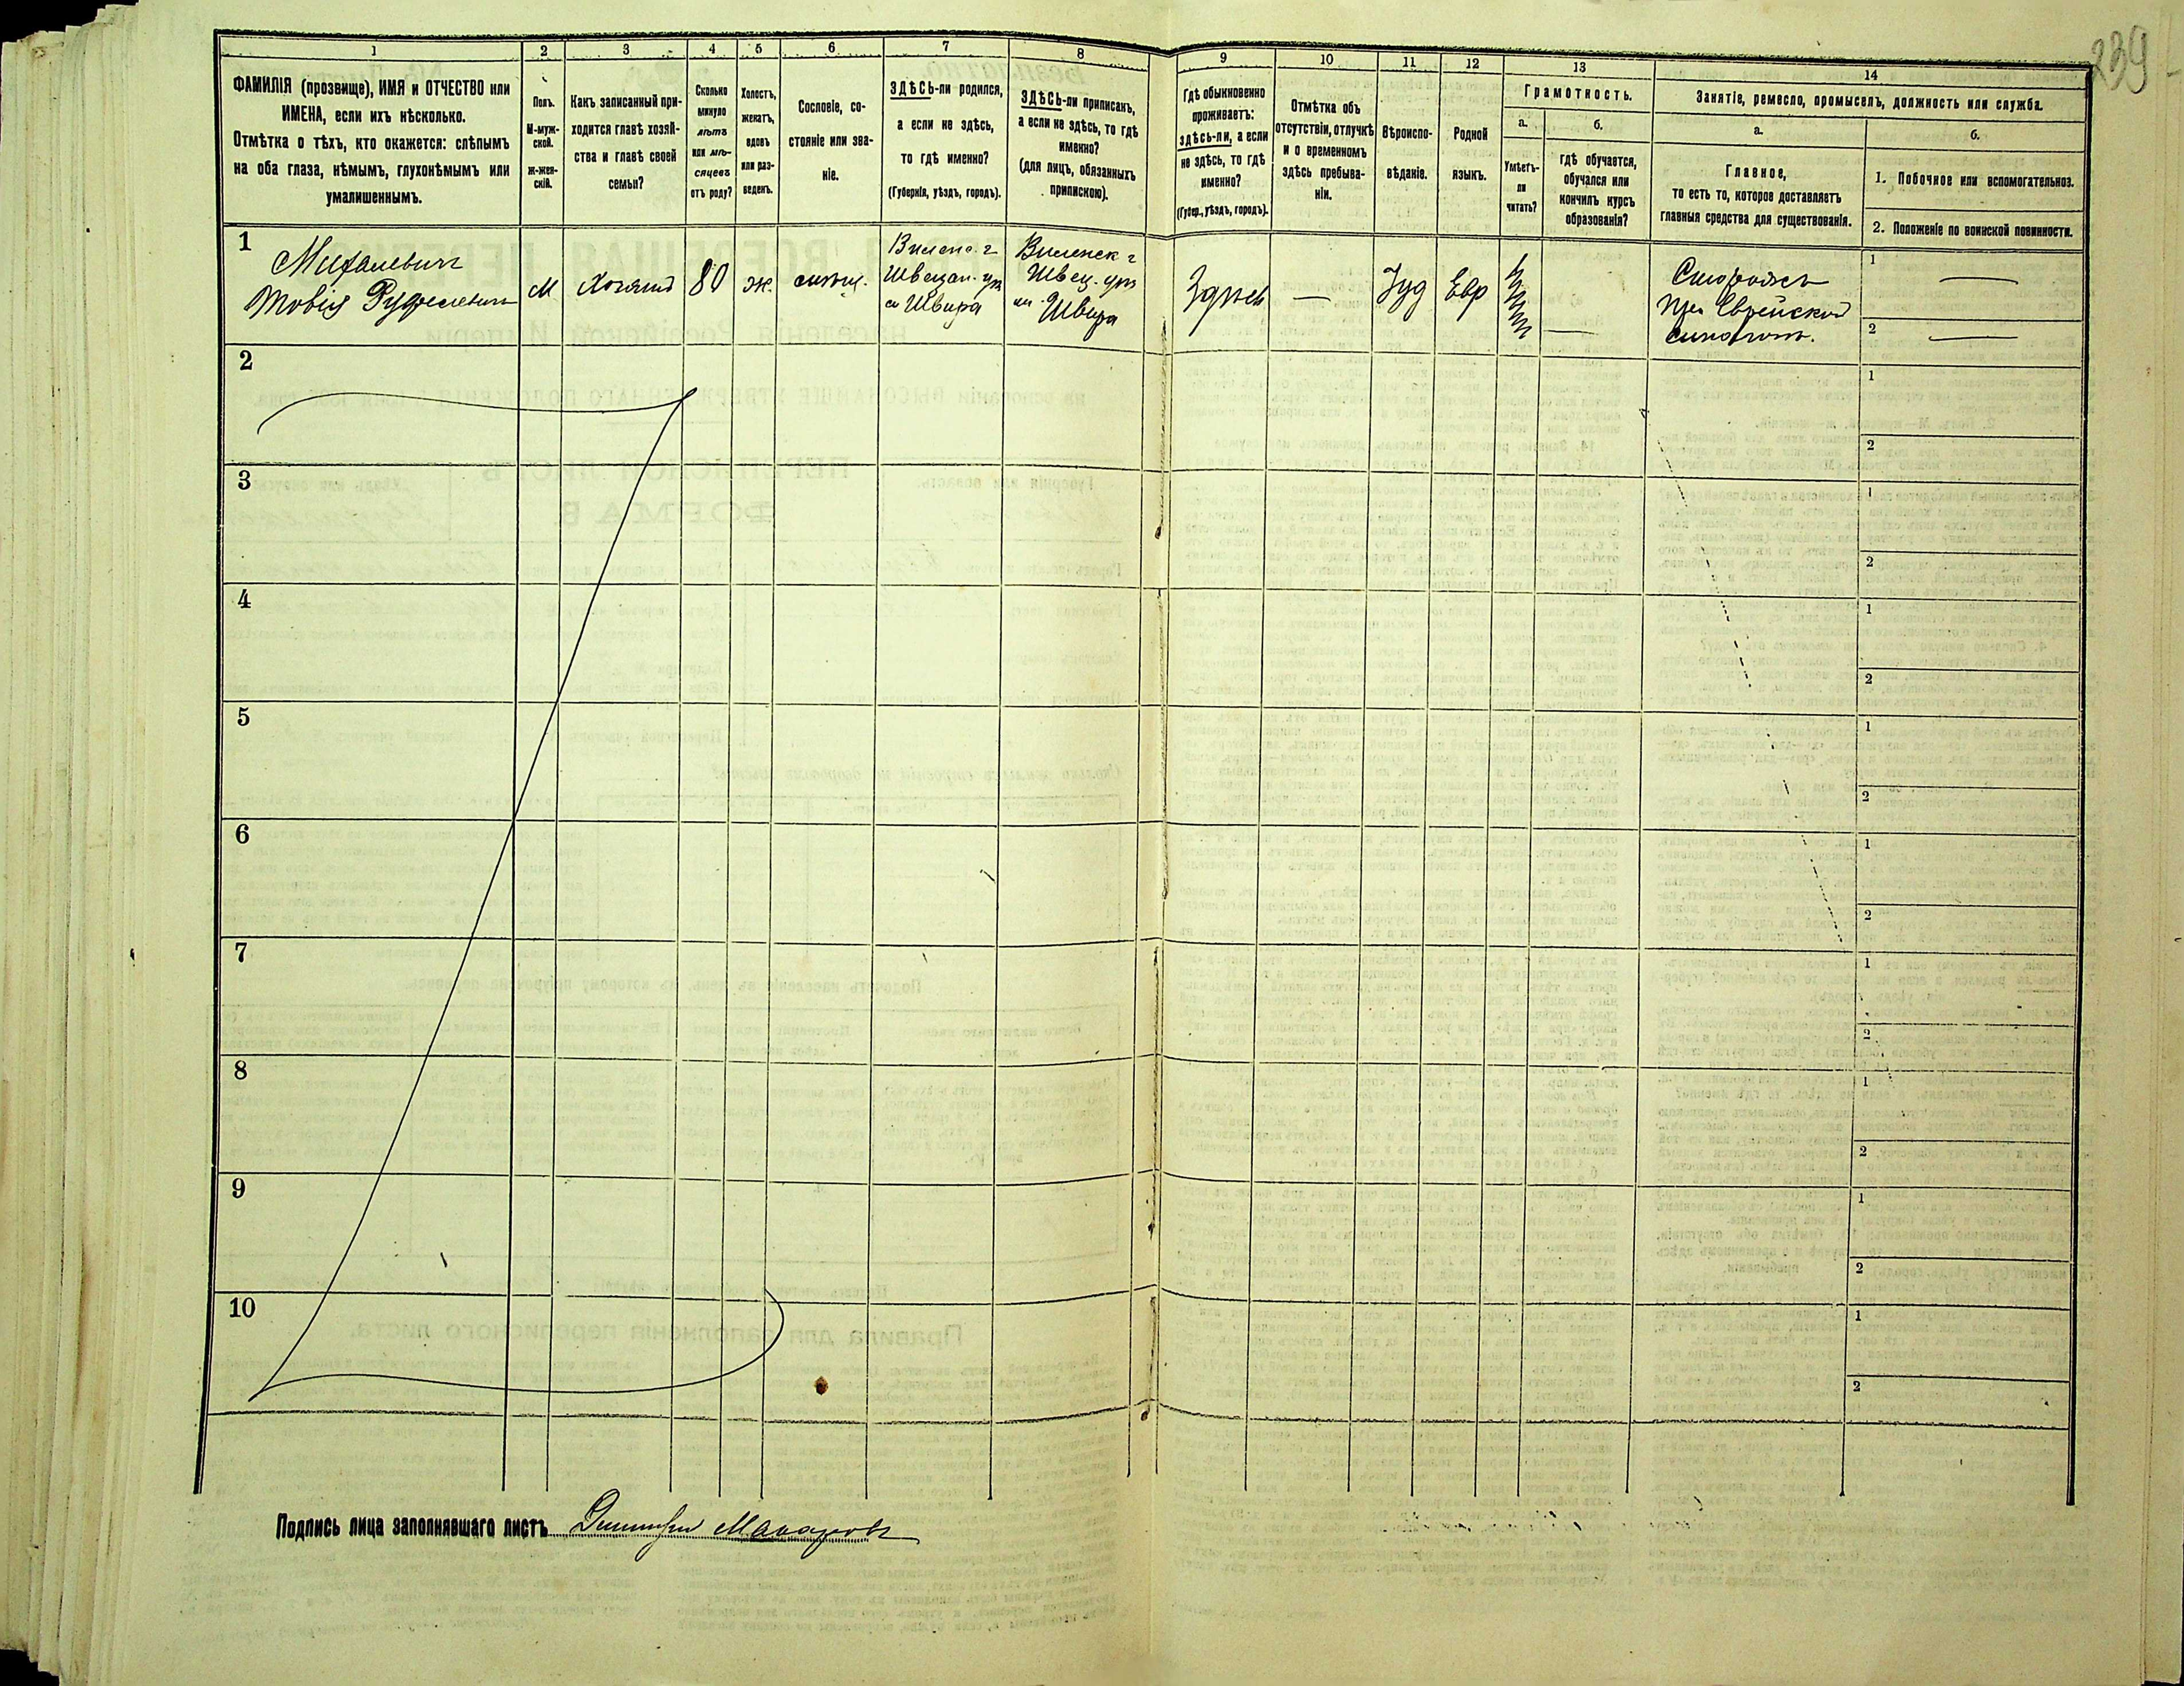 239
1 2 3 4 5 6 7 8 9 10 11 12 13 14
ФАМИЛІЯ (прозвище), ИМЯ и ОТЧЕСТВО или
ИМЕНА, если ихъ нѣсколько.
Отмѣтка о тѣхъ, кто окажется: слѣпымъ
на оба глаза, нѣмымъ, глухонѣмымъ или
умалишеннымъ.
Полъ.
М-муж-
ской.
Ж-жен-
скій.
Какъ записанный при-
ходится главѣ хозяй-
ства и главѣ своей
семьи?
Сколько
минуло
лѣтъ
или мѣ-
сяцевъ
отъ роду?
Холостъ,
женатъ,
вдовъ
или раз-
веденъ.
Сословіе, со-
стояніе или зва-
ніе.
ЗДѢСЬ-ли родился,
а если не здѣсь,
то гдѣ именно?
(Губернія, уѣздъ, городъ).
ЗДѢСЬ-ли приписанъ,
а если не здѣсь, то гдѣ
именно?
(для лицъ, обязанныхъ
припискою).
Гдѣ обыкновенно
проживаетъ:
здѣсь-ли, а если
не здѣсь, то гдѣ
именно?
(Губер., уѣздъ, городъ).
Отмѣтка объ
отсутствіи, отлучкѣ
и о временномъ
здѣсь пребыва-
ніи.
Вѣроиспо-
вѣданіе.
Родной
языкъ.
Грамотность.
а.
Умѣетъ-
ли
читать?
б.
гдѣ обучается,
обучался или
кончилъ курсъ
образованія?
Занятіе, ремесло, промыселъ, должность или служба.
а.
Главное,
то есть то, которое доставляетъ
главныя средства для существованія.
б.
1. Побочное или вспомогательное.
2. Положеніе по воинской повинности.
1
Михалевичъ
Товія
М
Хозяинъ
80
ж.
Виленск г
Швира
Швира
Здѣсь
—
Іуд
Евр
—
Сторожъ
при Еврейской
синагогѣ.
1 —
2 —
2
1
2
3
1
2
4
1
2
5
1
2
6
1
2
7
1
2
8
1
2
9
1
2
10
1
2
Подпись лица заполнявшаго листъ Дмитрій Макаровъ